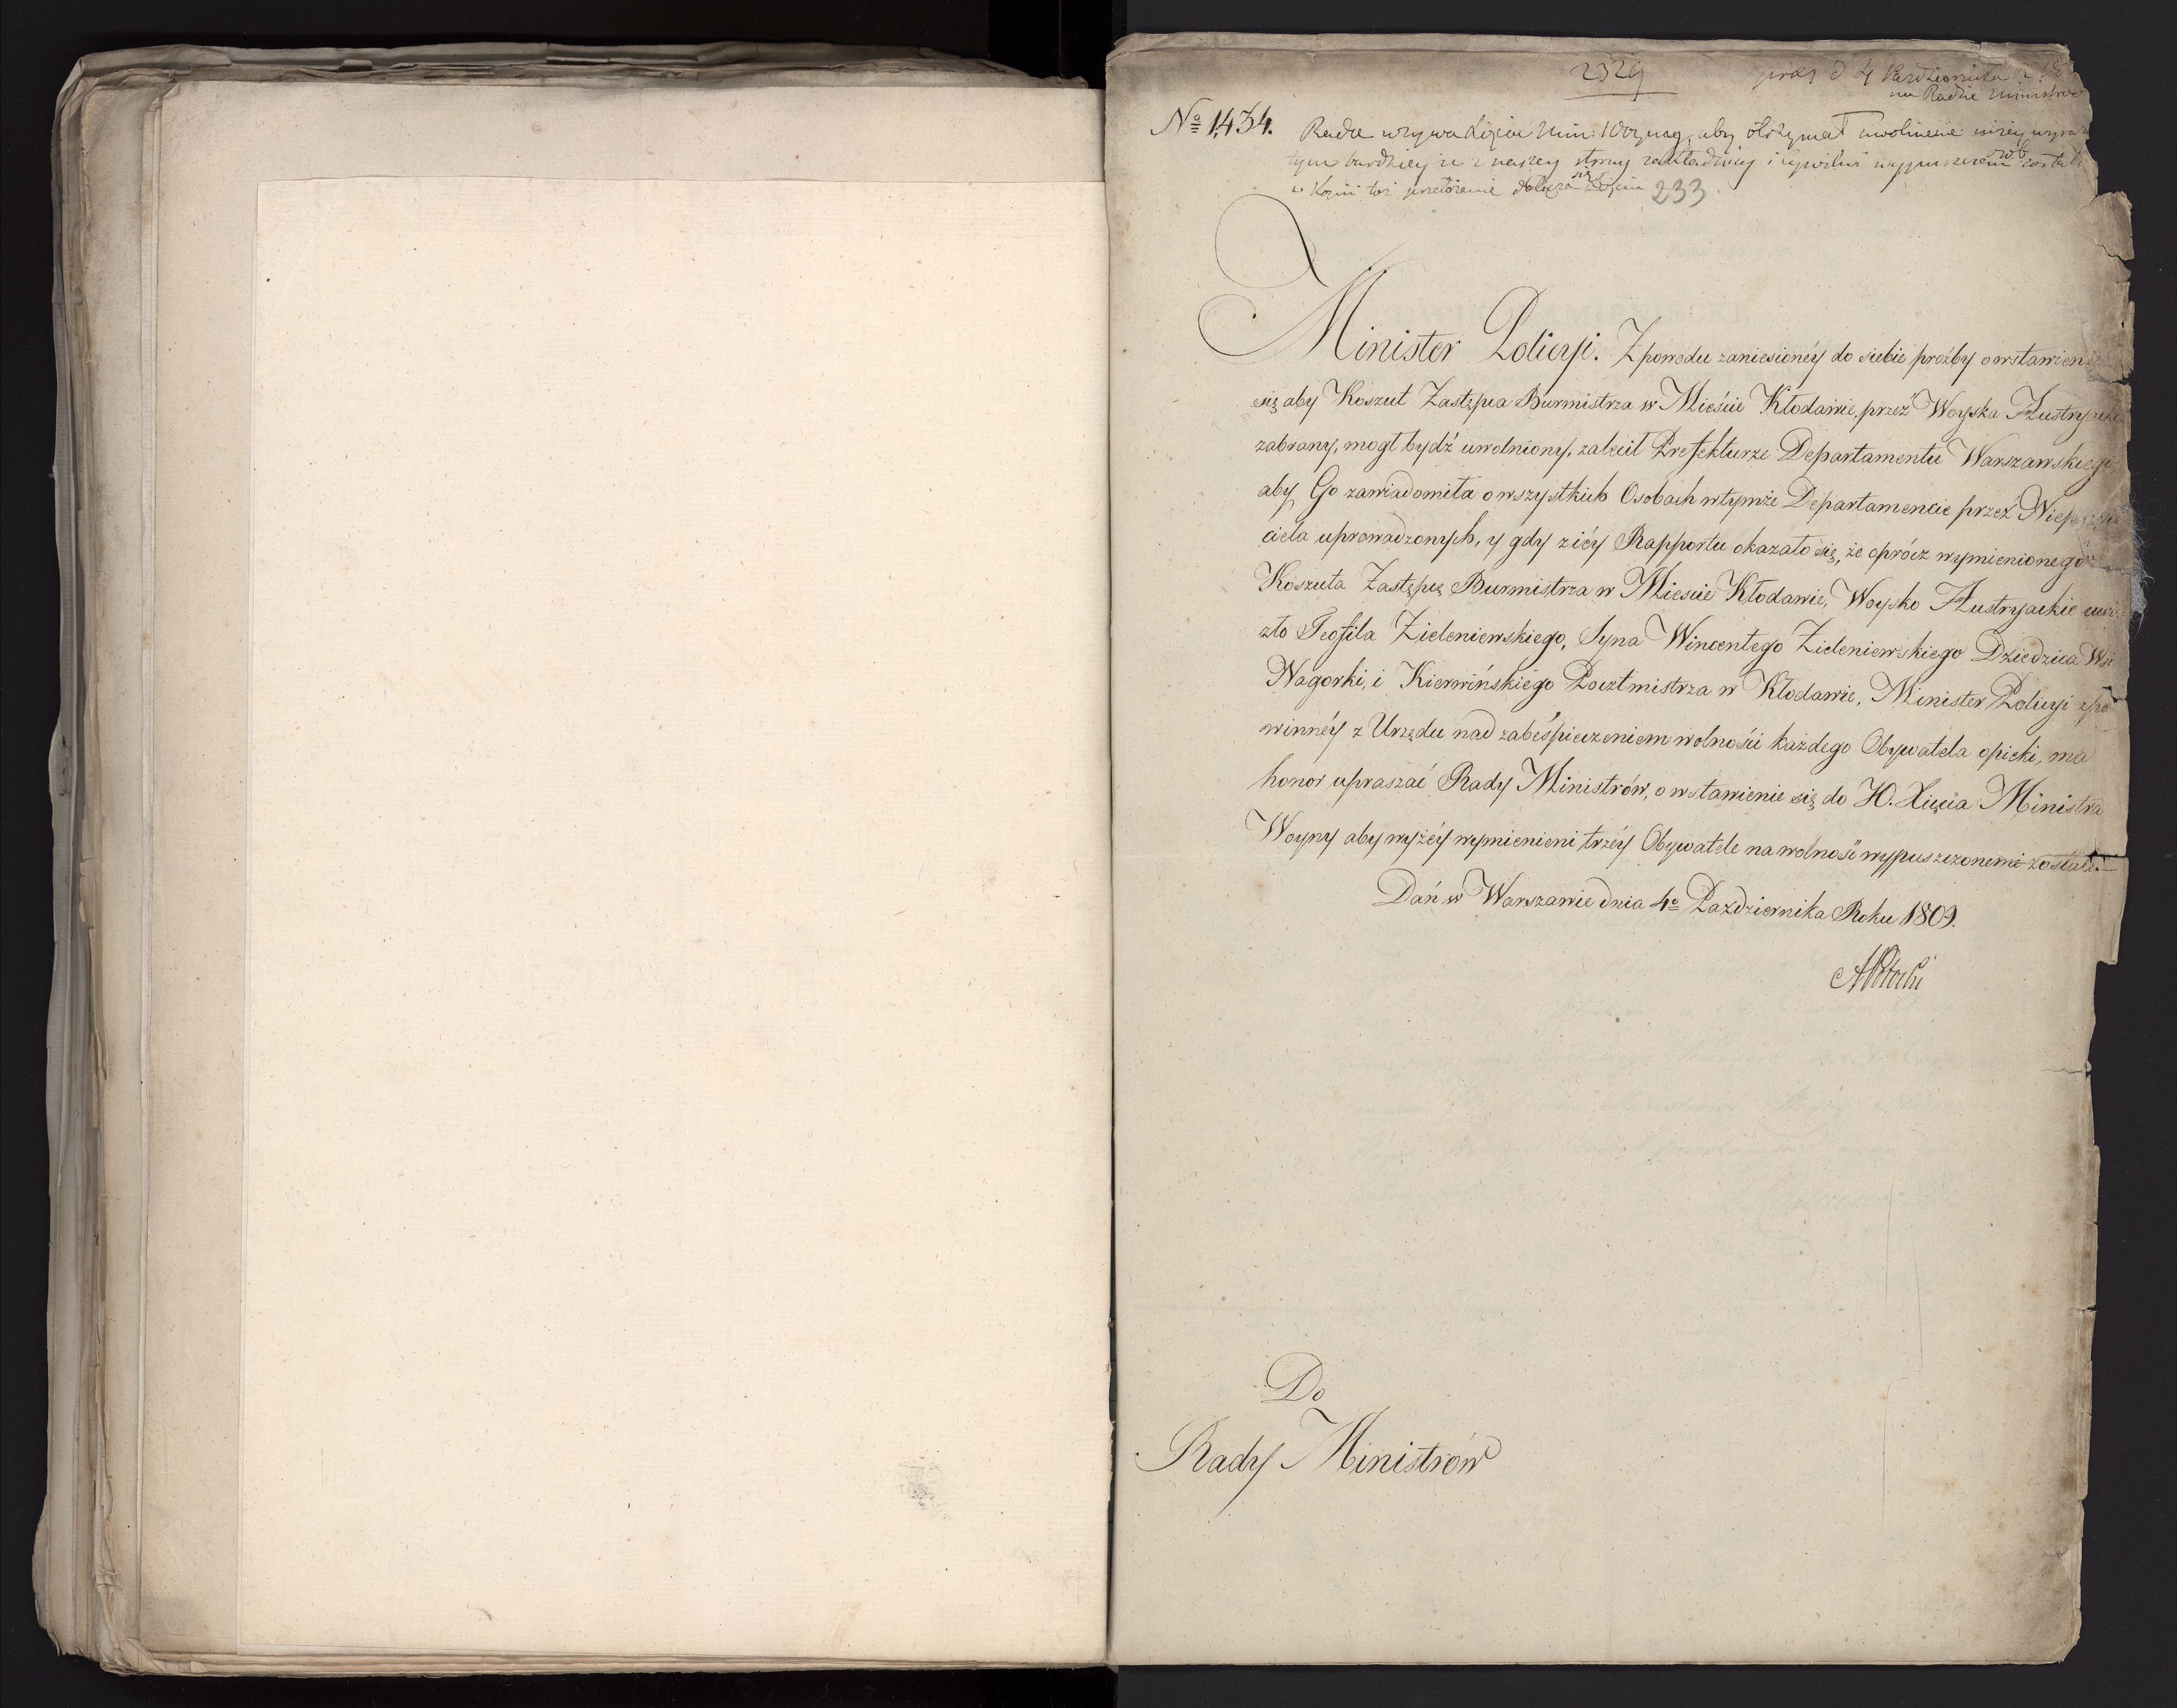 2329
d 4 Pazdziernika
na Radzie Ministrow
Nº 1,434.
Rada wzywa Xięcia Min: Woyny, aby otrzymał uwolnienie niżey
tym bardziey że z naszey strony zakładnicy i cywilni wypuszczeni
w kopii toż przełożenie dołącza się Xięciu
233
Minister Policyi. Z powodu zaniesionéy do siebie proźby o wstawien
się aby Koszut Zastępca Burmistrza w Mieście Kłodawie, przez Woyska Austryackie
zabrany, mogł bydź uwolniony, zalecił Prefekturze Departamentu Warszawskiego
aby Go zawiadomiła o wszystkich Osobach w tymże Departamencie przez Nieprzyia
ciela uprowadzonych, y gdy z iéy Rapportu okazało się, że oprócz wymienionego
Koszuta Zastępcę Burmistrza w Mieście Kłodawie, Woysko Austryackie uwio
zło Teofila Zieleniewskiego, Syna Wincentego Zieleniewskiego Dziedzica Wsi
Nagorki, i Kierwińskiego Pocztmistrza w Kłodawie, Minister Policyi z po
winnéy z Urzędu nad zabeśpieczeniem wolności każdego Obywatela opieki, ma
honor upraszać Rady Ministrów, o wstawienie się do JO. Xięcia Ministra
Woyny aby wyżéy wymienieni trzéy Obywatele na wolność wypuszczonemi zostali.
Dań w Warszawie dnia 4º Października Roku 1809.
APotocki
Do
Rady Ministrów